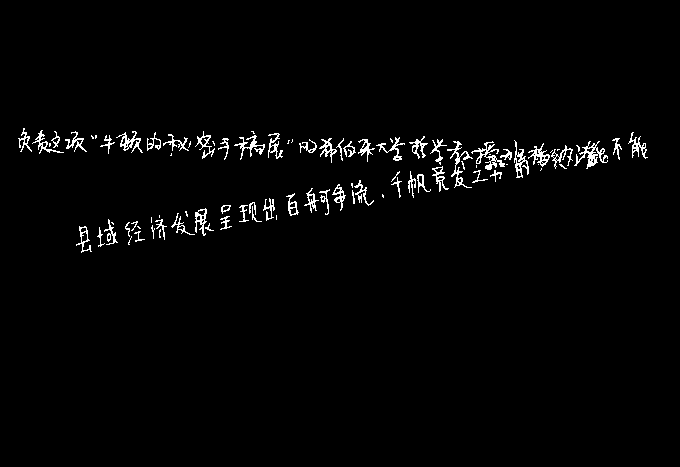 负责这项"牛顿的秘密手稿展"的希伯来大学哲学教授不能
县域经济发展呈现出百舸争流、千帆竞发